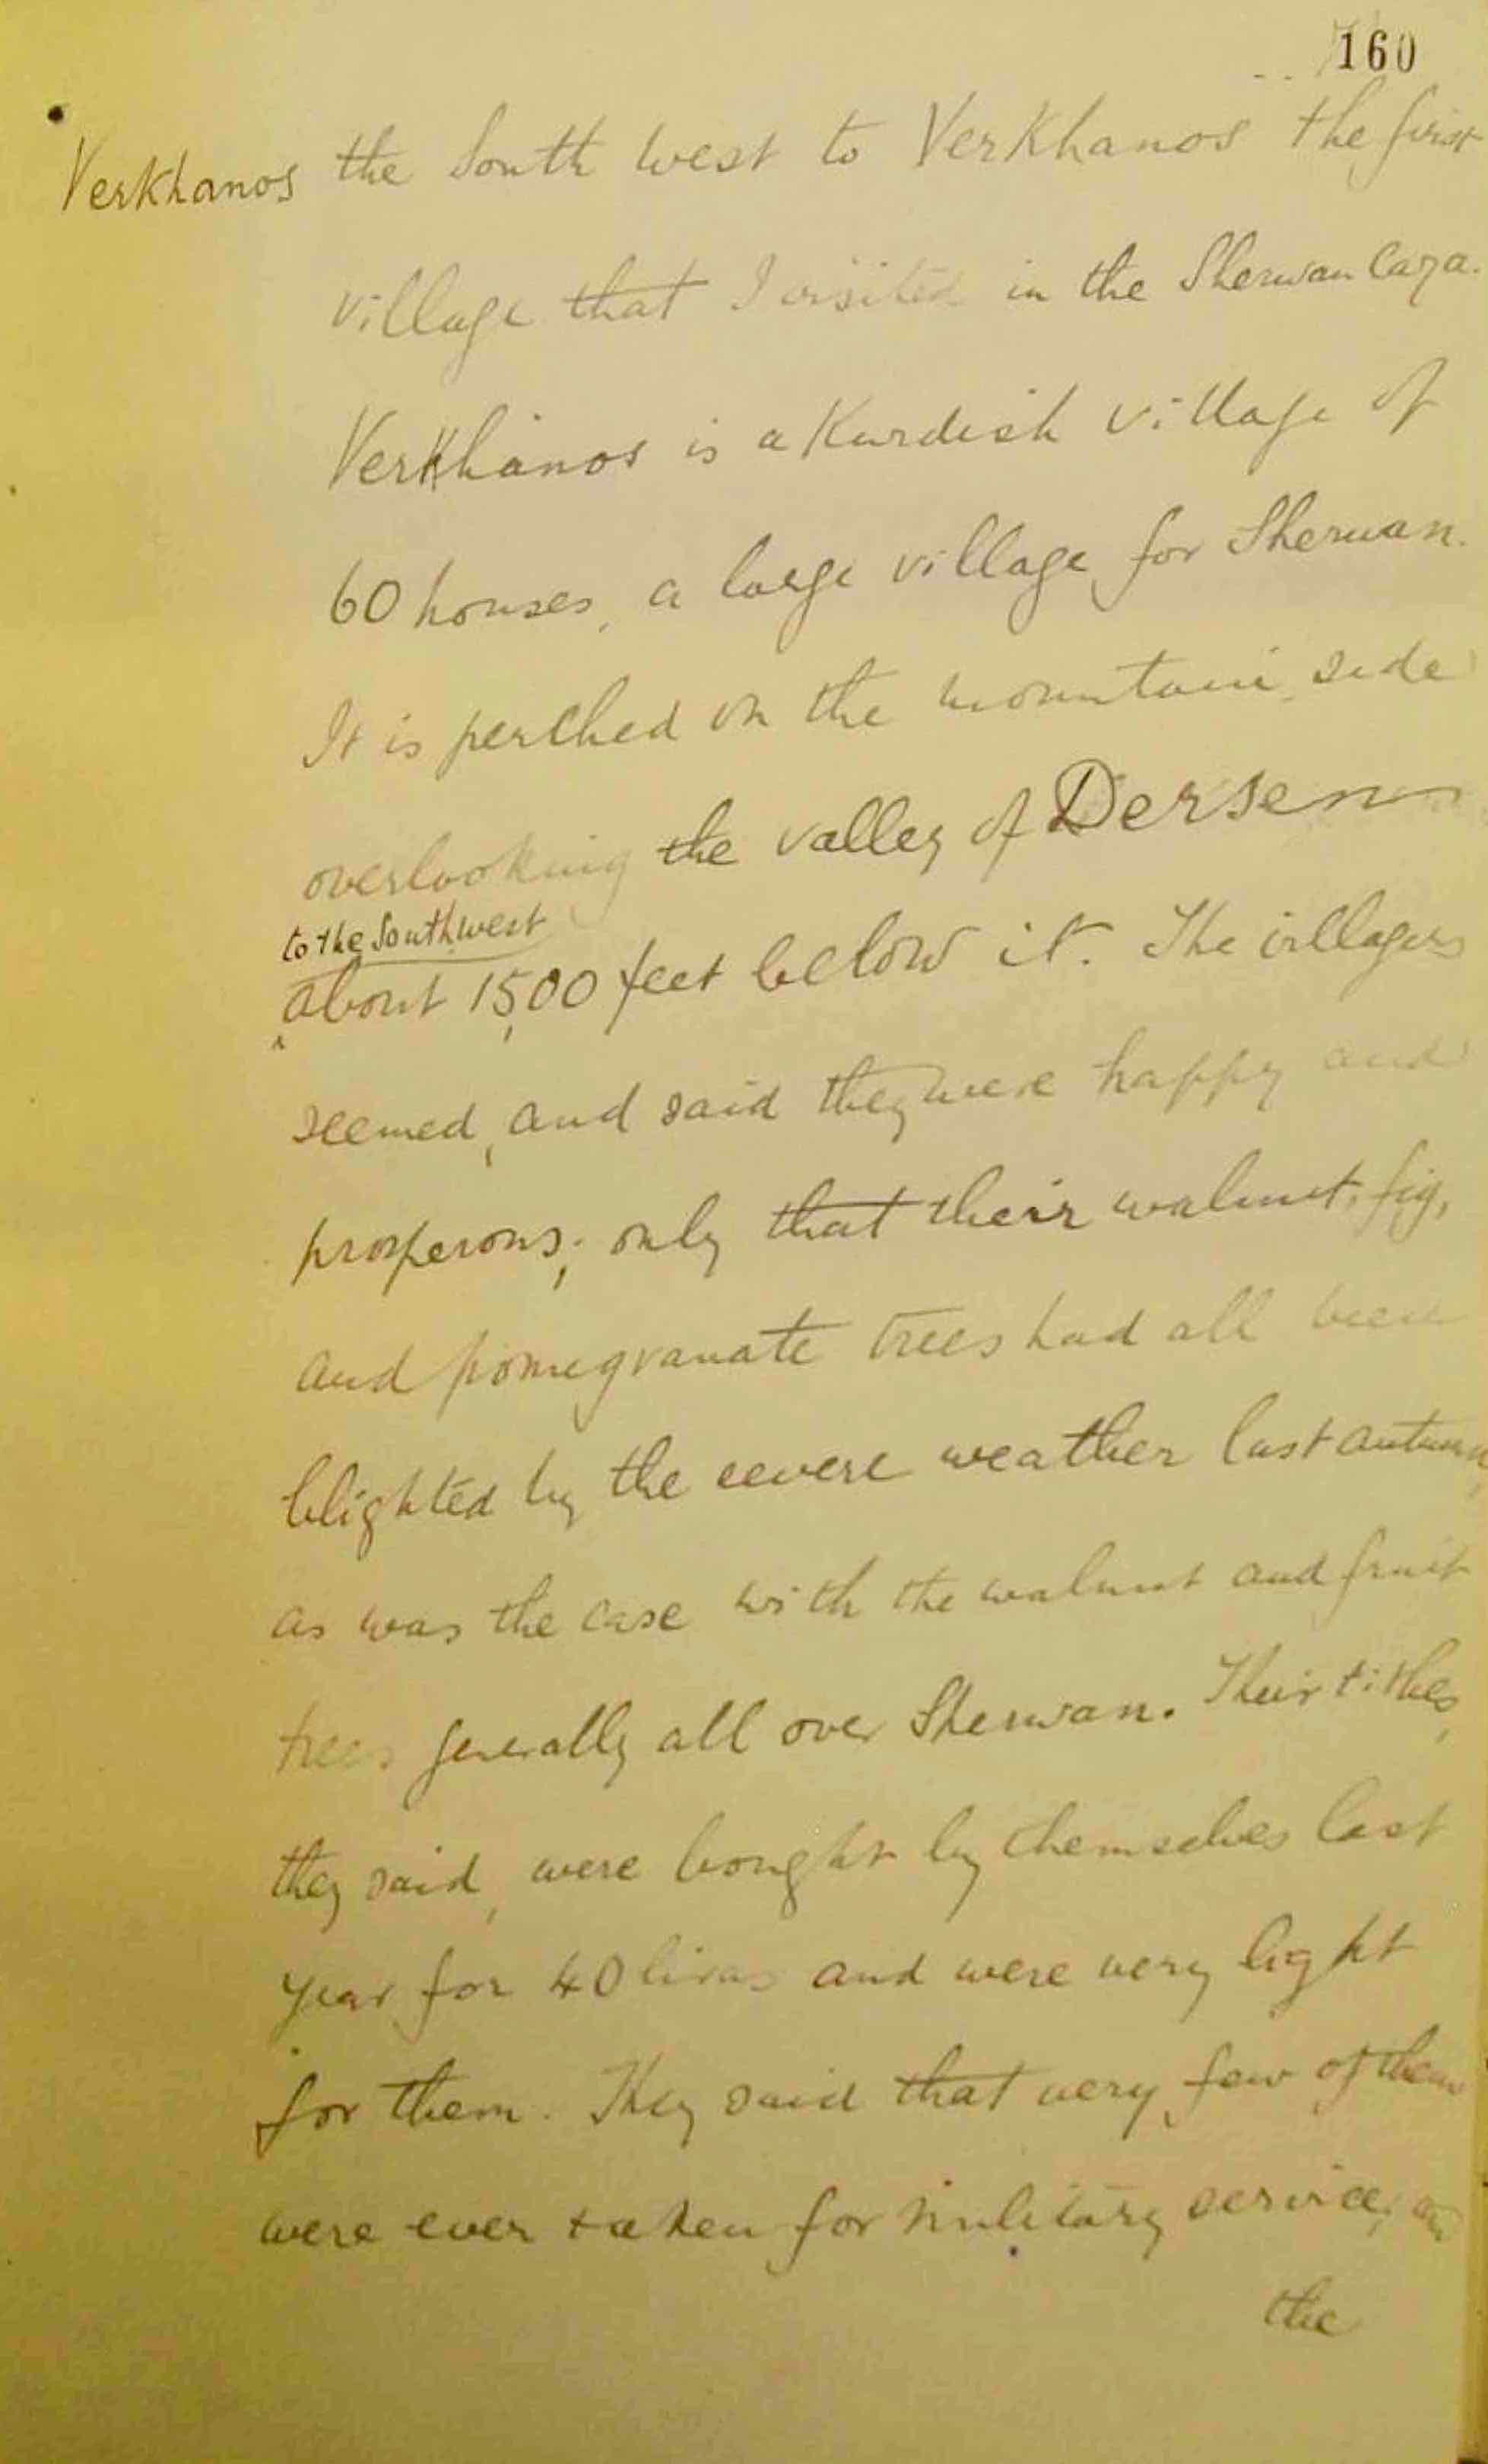 160
Verkhanos
the South West to Verkhanos the first
village that I visited in the Sherwan Caza.
Verkhanos is a Kurdish village of
60 houses, a large village for Sherwan.
It is perched on the mountain side
overlooking the valley of Dersen
to the Southwest
about 1500 feet below it. The villagers
seemed, and said they were happy and
prosperous; only that their walnut, fig,
and pomegranate trees had all been
blighted by the severe weather last autumn,
as was the case with the walnut and fruit
trees generally all over Sherwan. Their tithes,
they said, were bought by themselves last
year for 40 liras and were very light
for them. They said that very few of them
were ever taken for military service, and
the